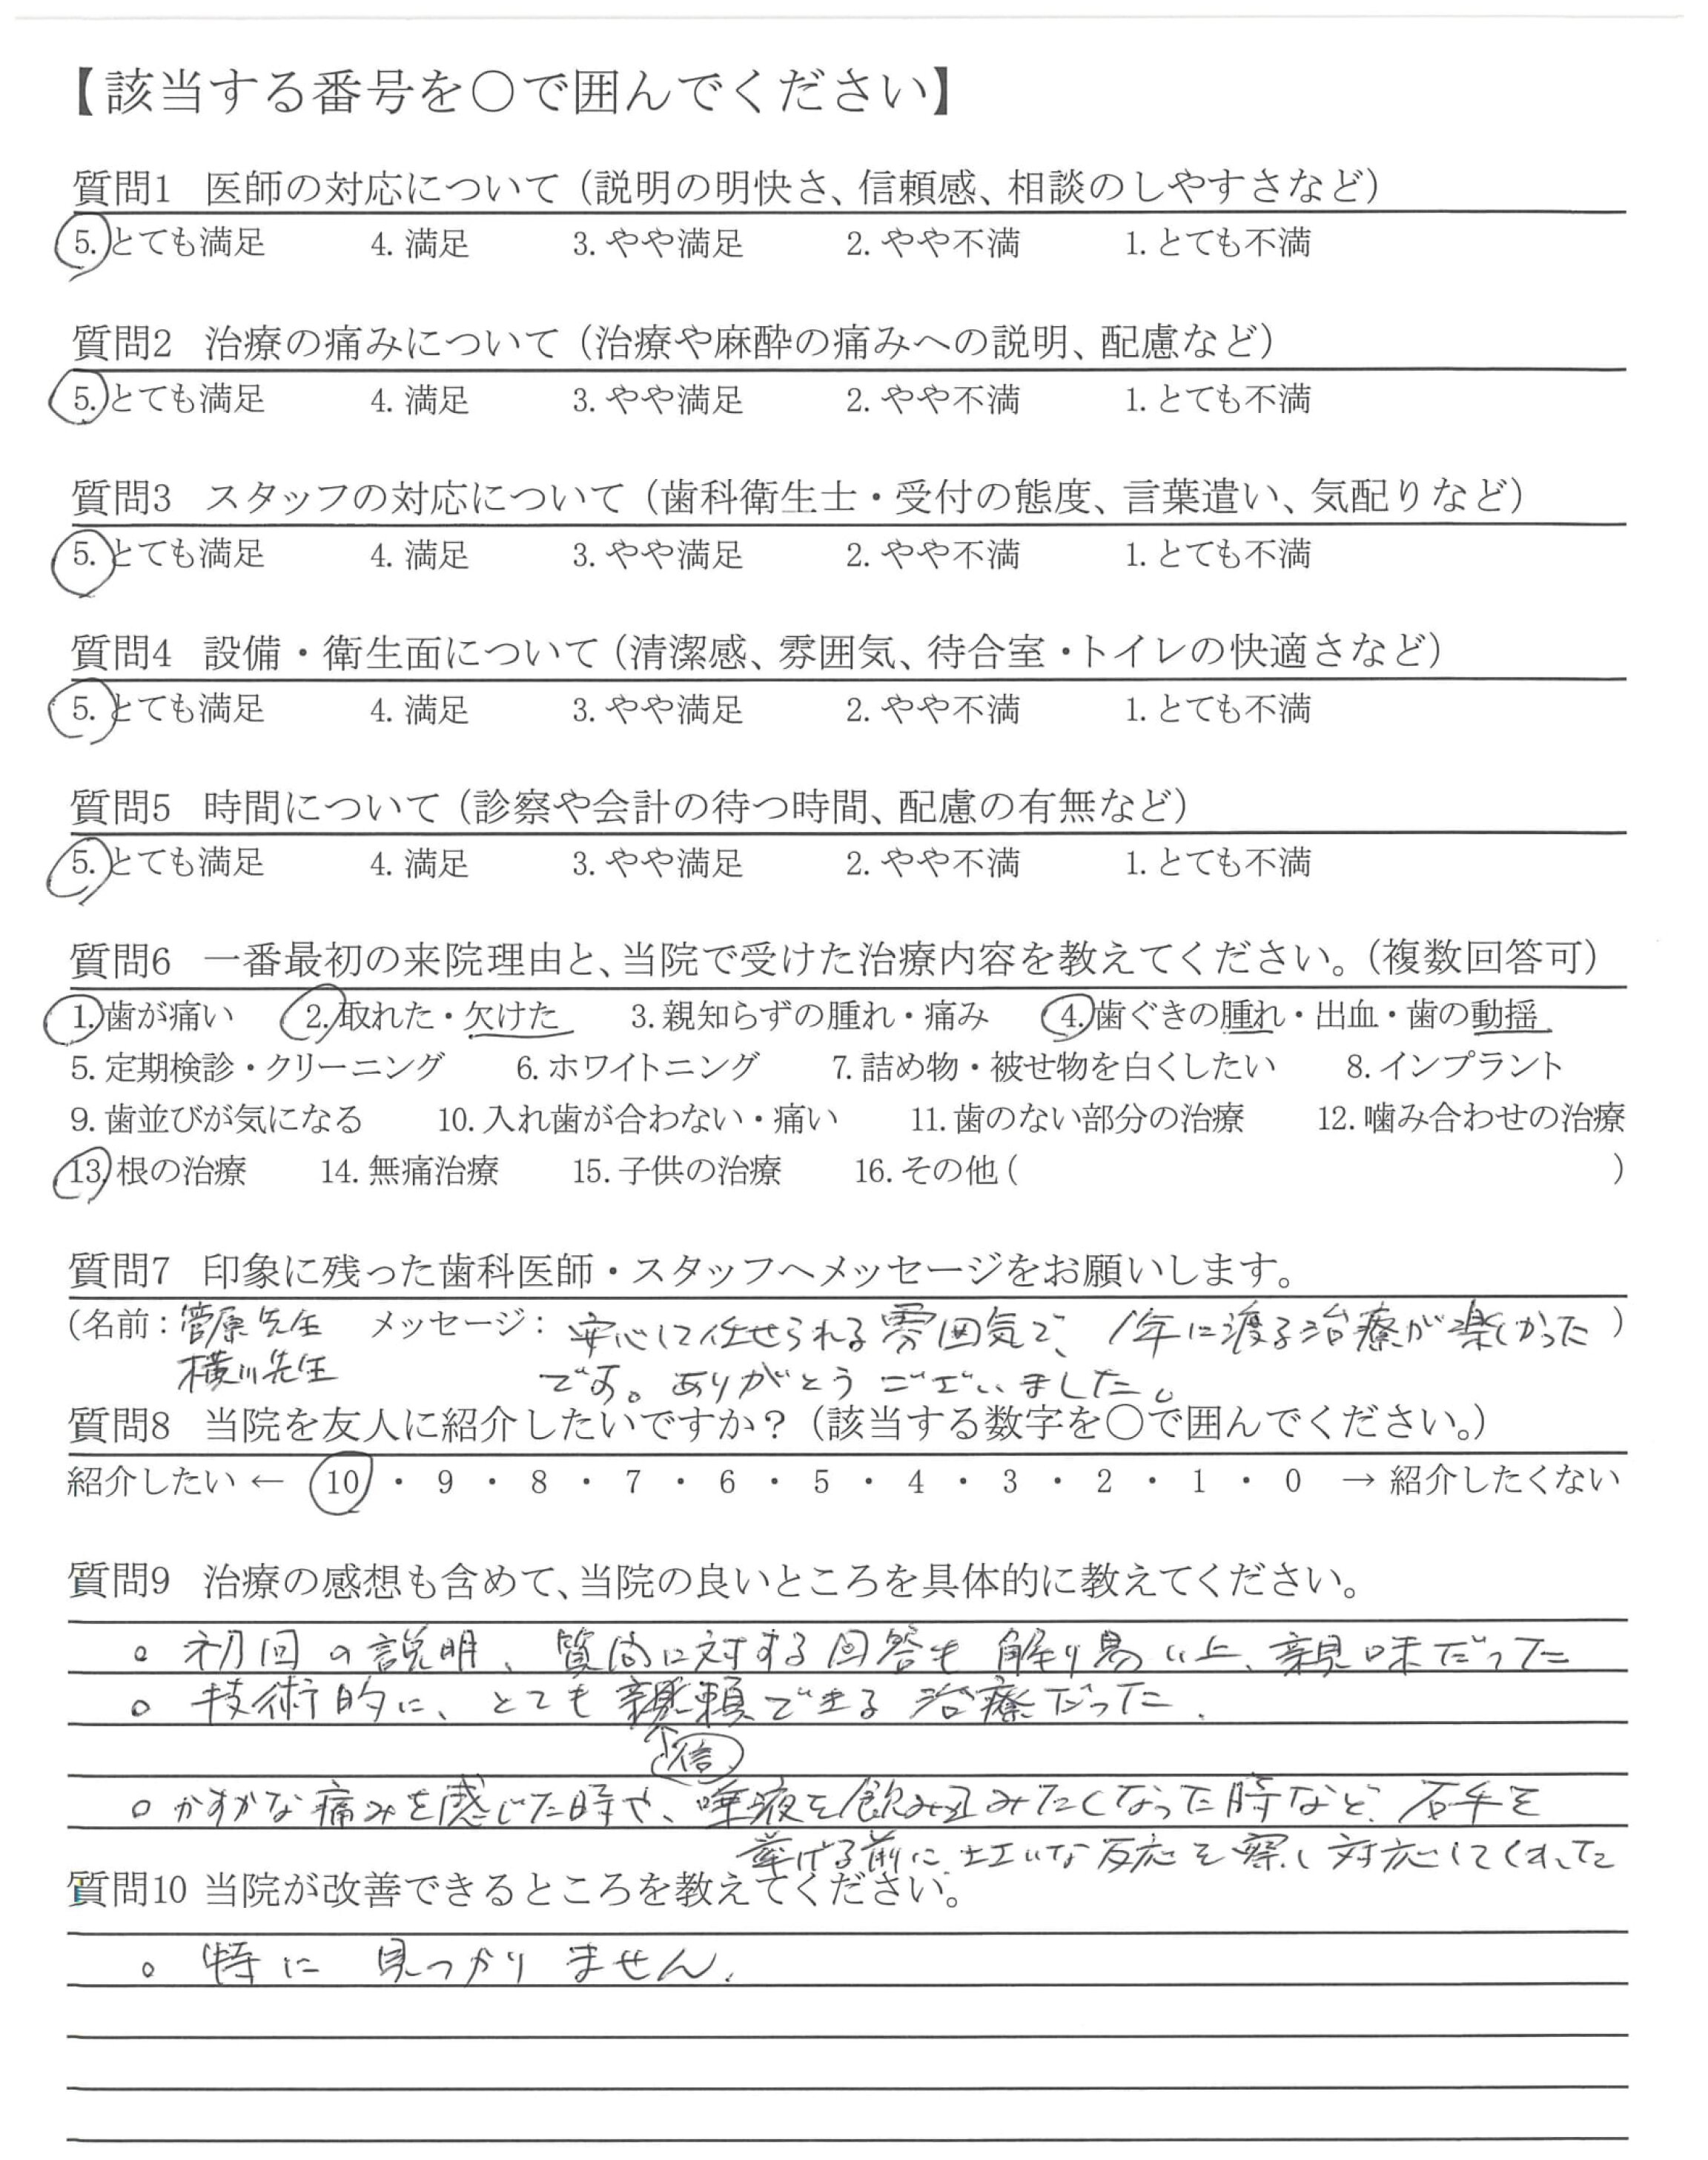 【該当する番号を〇で囲んでください】
質問1 医師の対応について（説明の明快さ、信頼感、相談のしやすさなど）
5. とても満足 4. 満足 3. やや満足 2. やや不満 1. とても不満
質問2 治療の痛みについて（治療や麻酔の痛みへの説明、配慮など）
5. とても満足 4. 満足 3. やや満足 2. やや不満 1. とても不満
質問3 スタッフの対応について（歯科衛生士・受付の態度、言葉遣い、気配りなど）
5. とても満足 4. 満足 3. やや満足 2. やや不満 1. とても不満
質問4 設備・衛生面について（清潔感、雰囲気、待合室・トイレの快適さなど）
5. とても満足 4. 満足 3. やや満足 2. やや不満 1. とても不満
質問5 時間について（診察や会計の待つ時間、配慮の有無など）
5. とても満足 4. 満足 3. やや満足 2. やや不満 1. とても不満
質問6 一番最初の来院理由と、当院で受けた治療内容を教えてください。（複数回答可）
1. 歯が痛い 2. 取れた・欠けた 3. 親知らずの腫れ・痛み 4. 歯ぐきの腫れ・出血・歯の動揺
5. 定期検診・クリーニング 6. ホワイトニング 7. 詰め物・被せ物を白くしたい 8. インプラント
9. 歯並びが気になる 10. 入れ歯が合わない・痛い 11. 歯のない部分の治療 12. 噛み合わせの治療
13. 根の治療 14. 無痛治療 15. 子供の治療 16. その他（ ）
質問7 印象に残った歯科医師・スタッフへメッセージをお願いします。
（名前：菅原先生 メッセージ：安心して任せられる雰囲気で、1年に渡る治療が楽しかった）
横川先生 です。ありがとうございました。
質問8 当院を友人に紹介したいですか？（該当する数字を〇で囲んでください。）
紹介したい ← 10 ・ 9 ・ 8 ・ 7 ・ 6 ・ 5 ・ 4 ・ 3 ・ 2 ・ 1 ・ 0 → 紹介したくない
質問9 治療の感想も含めて、当院の良いところを具体的に教えてください。
。初回の説明、質問に対する回答も解り易い上、親味だった
。技術的に、とても親頼できる治療だった.
↑信
。かすかな痛みを感じた時や、唾液を飲み込みたくなった時など、右手を
挙げる前に、な反応を察し対応してくれた
質問10 当院が改善できるところを教えてください。
。特に 見つかりません.